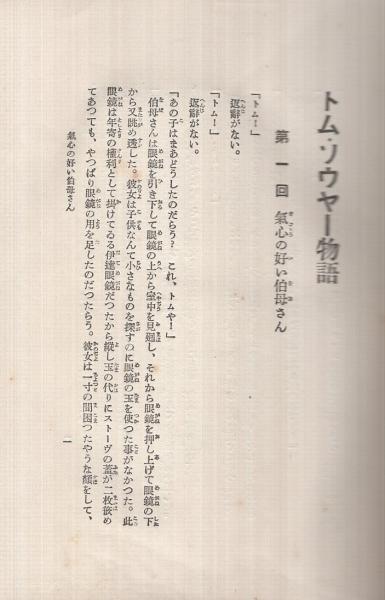 トム・ソウヤー物語
第一回 氣心の好い伯母さん
「トム！」
返辭がない。
「トム！」
返辭がない。
「あの子はまあどうしたのだらう？ これ、トムや！」
伯母さんは眼鏡を引き下して眼鏡の上から室中を見廻し、それから眼鏡を押し上げて眼鏡の下
から又眺め透した。彼女は子供なんて小さなものを探すのに眼鏡の玉を使つた事がなかつた。此
眼鏡は年寄の權利として掛けてゐる伊達眼鏡だつたから縱し玉の代りにストーヴの蓋が二枚嵌め
てあつても、やつぱり眼鏡の用を足したのだつたらう。彼女は一寸の間困つたやうな顏をして、
氣心の好い伯母さん
一